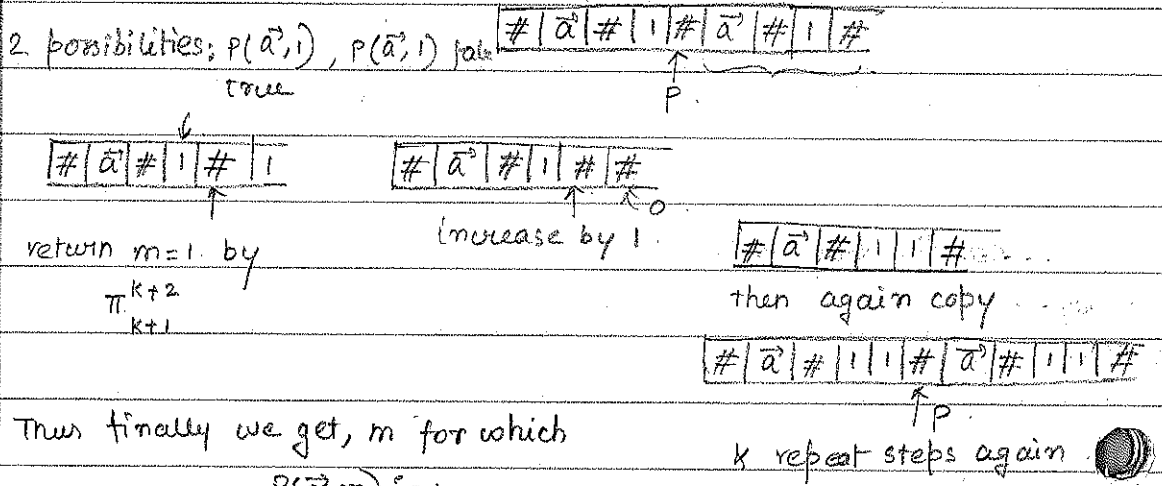 2 possibilities: P(a⃗,1), P(a⃗,1) false
true
# | a⃗ | # | 1 | # | a⃗ | # | 1 | #
P.
# | a⃗ | # | 1 | # | 1
# | a⃗ | # | 1 | # | #
0
return m=1. by
increase by 1.
π^{k+2}_{k+1}
# | a⃗ | # | 1 | 1 | #
then again copy
# | a⃗ | # | 1 | 1 | # | a⃗ | # | 1 | 1 | #
P
Thus finally we get, m for which
& repeat steps again
P(a⃗,m) is